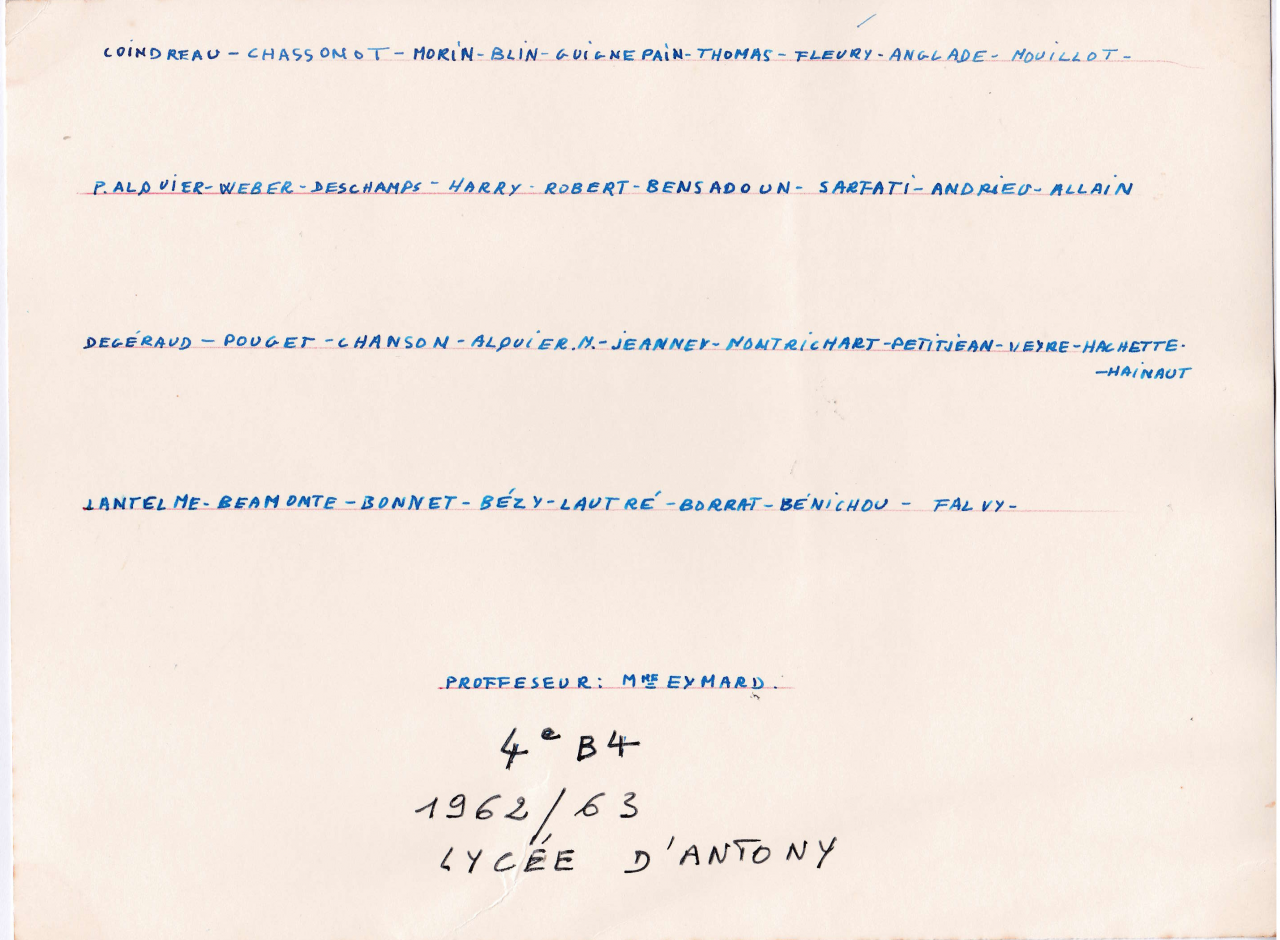 COINDREAU - CHASSONOT - MORiN - BLiN - GUiGNEPAiN - THOMAS - FLEURY - ANGLADE - MOUiLLOT -
P. ALQUiER - WEBER - DESCHAMPS - HARRY - ROBERT - BENSADOUN - SARFATi - ANDRiEU - ALLAiN
DEGÉRAUD - POUGET - CHANSON - ALQUiER.M. - JEANNEY - MONTRiCHART - PETiTJEAN - VEYRE - HACHETTE -
- HAiNAUT
LANTELME - BEAMONTE - BONNET - BÉZY - LAUTRÉ - BORRAT - BÉNiCHOU - FALVY -
PROFFESEUR : MME EYMARD.
4e B4
1962/63
LYCÉE D'ANTONY